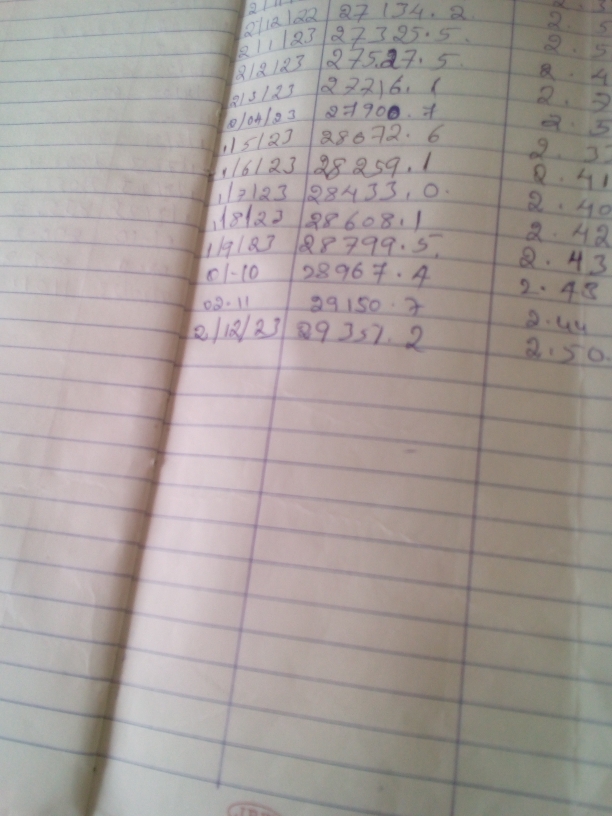 2/12/22 27134.2 2.5
2/1/23 27325.5. 2.5
2/2/23 27527.5 2.4
2/3/23 27716.1 2.3
2/04/23 27900.7 2.3
1/5/23 28072.6 2.3
1/6/23 28259.1 2.41
1/7/23 28433.0. 2.40
1/8/23 28608.1 2.42
1/9/23 28799.5. 2.43
01-10 28967.4 2.48
02.11 29150.7 2.44
2/12/23 29357.2 2.50